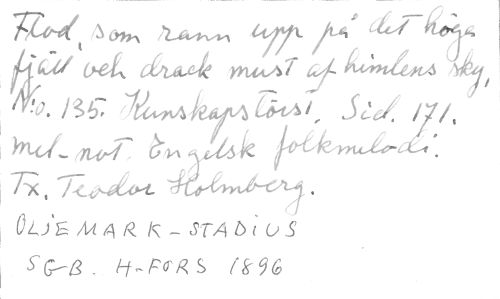 Flod, som rann upp på det höga
fjäll och drack must af himlens sky,
N:o. 135. Kunskapstörst. Sid. 171.
mel-not. Engelsk folkmelodi.
Tx. Teodor Holmberg.
OLJEMARK-STADIUS
SGB. H-FORS 1896